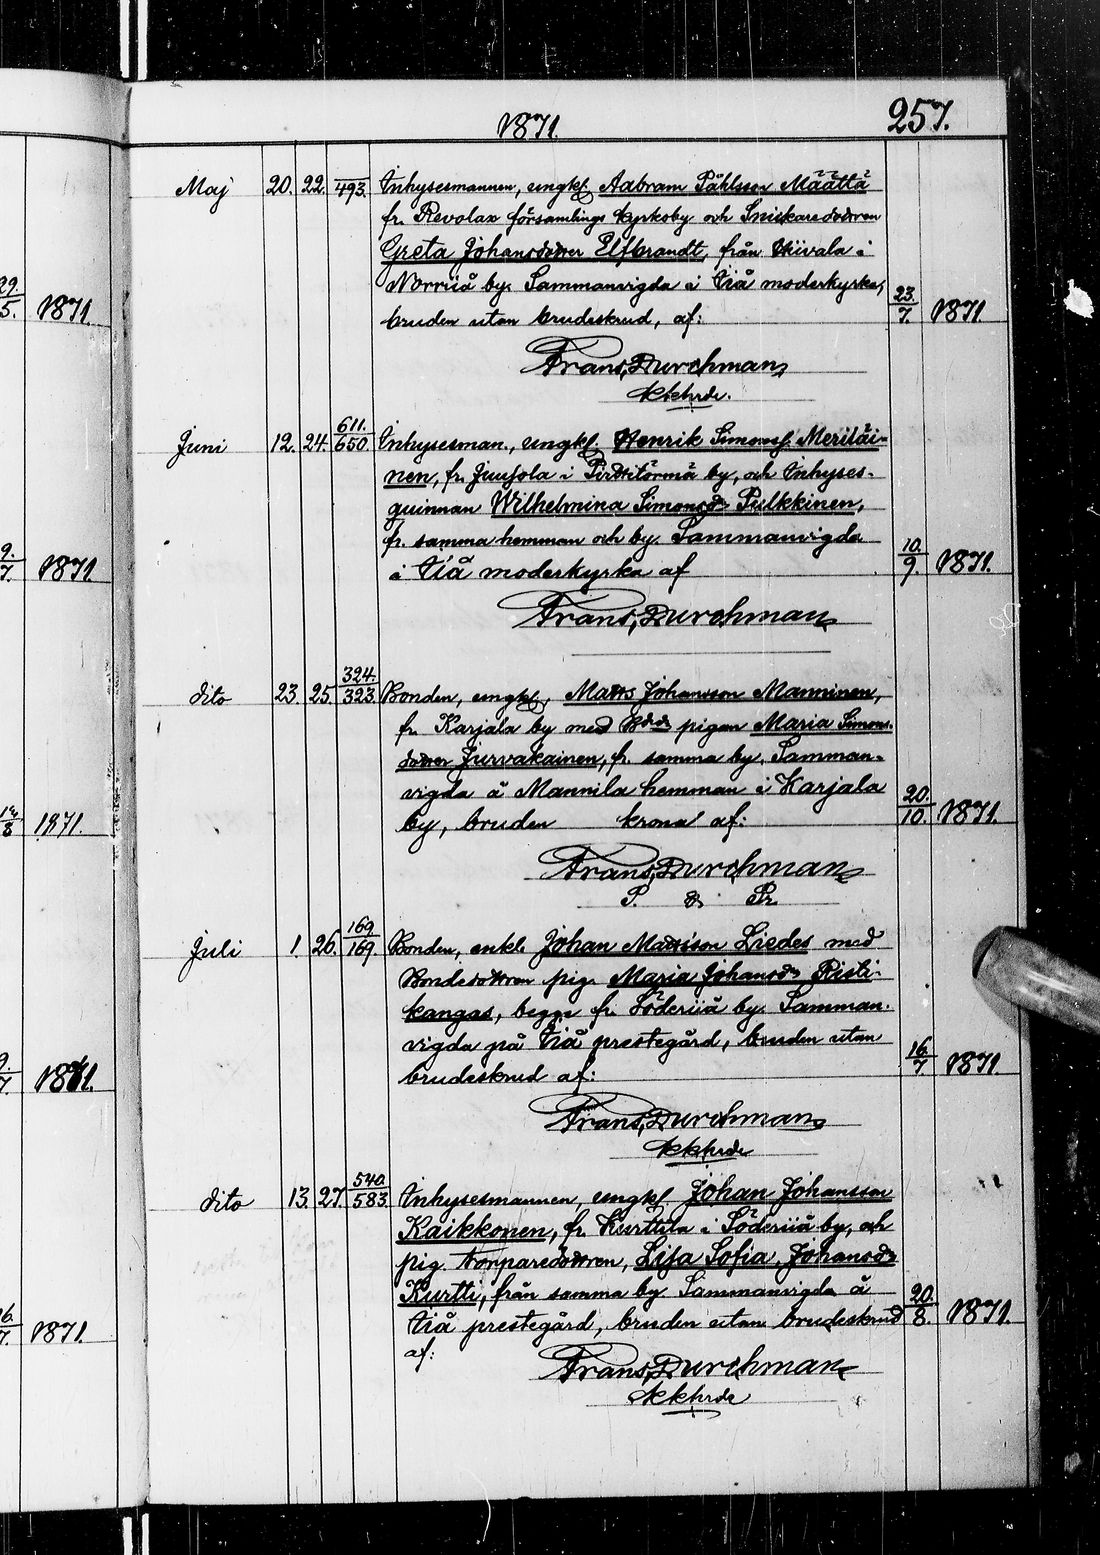 1871. 257.
Maj 20. 22. 493. Inhysesmannen, ungkl. Aabram Påhlsson Määttä
fr. Revolax församlings kyrkoby och Snickaredottren
Greta Johansdotter Elfbrandt, från Wiivala i
29. Norriiå by. Sammanvigda i Iiå moderkyrka, 23.
5. 1871. bruden utan brudeskrud, af: 7. 1871.
Frans Durchman
Kkhrde.
611.
Juni 12. 24. 650. Inhysesman., ungkl. Henrik Simonsf. Meriläi-
nen, fr. Juusola i Pirttitörmä by, och Inhyses-
quinnan Wilhelmina Simonsdr Pulkkinen,
9. fr. samma hemman och by. Sammanvigda 10.
7. 1871. i Iiå moderkyrka af 9. 1871.
Frans Durchman
324.
dito 23. 25. 323. Bonden, ungkl. Matts Johansson Manninen,
fr. Karjala by med pigan Maria Simons-
dotter Jurvakainen, fr. samma by. Samman-
vigda å Mannila hemman i Karjala 20.
8 1871. by, bruden krona af: 10. 1871.
Frans Durchman
P. & Pr.
169.
Juli 1. 26. 169. Bonden, enkl. Johan Mattsson Liedes med
Bondedottren pig. Maria Johansdr Risti-
kangas, begge fr. Söderiiå by. Samman-
9. vigda på Iiå prestegård, bruden utan 16.
7. 1871. brudeskrud af: 7. 1871.
Frans Durchman
Kkhrde
540.
dito 13. 27. 583. Inhysesmannen, ungkl. Johan Johansson
Kaikkonen, fr. Kurttila i Söderiiå by, och
pig. torparedottren, Lisa Sofia Johansdr
Kurtti, från samma by. Sammanvigda å 20.
16. 7. 1871. Iiå prestegård, bruden utan brudeskrud 8. 1871.
af:
Frans Durchman
Kkhrde